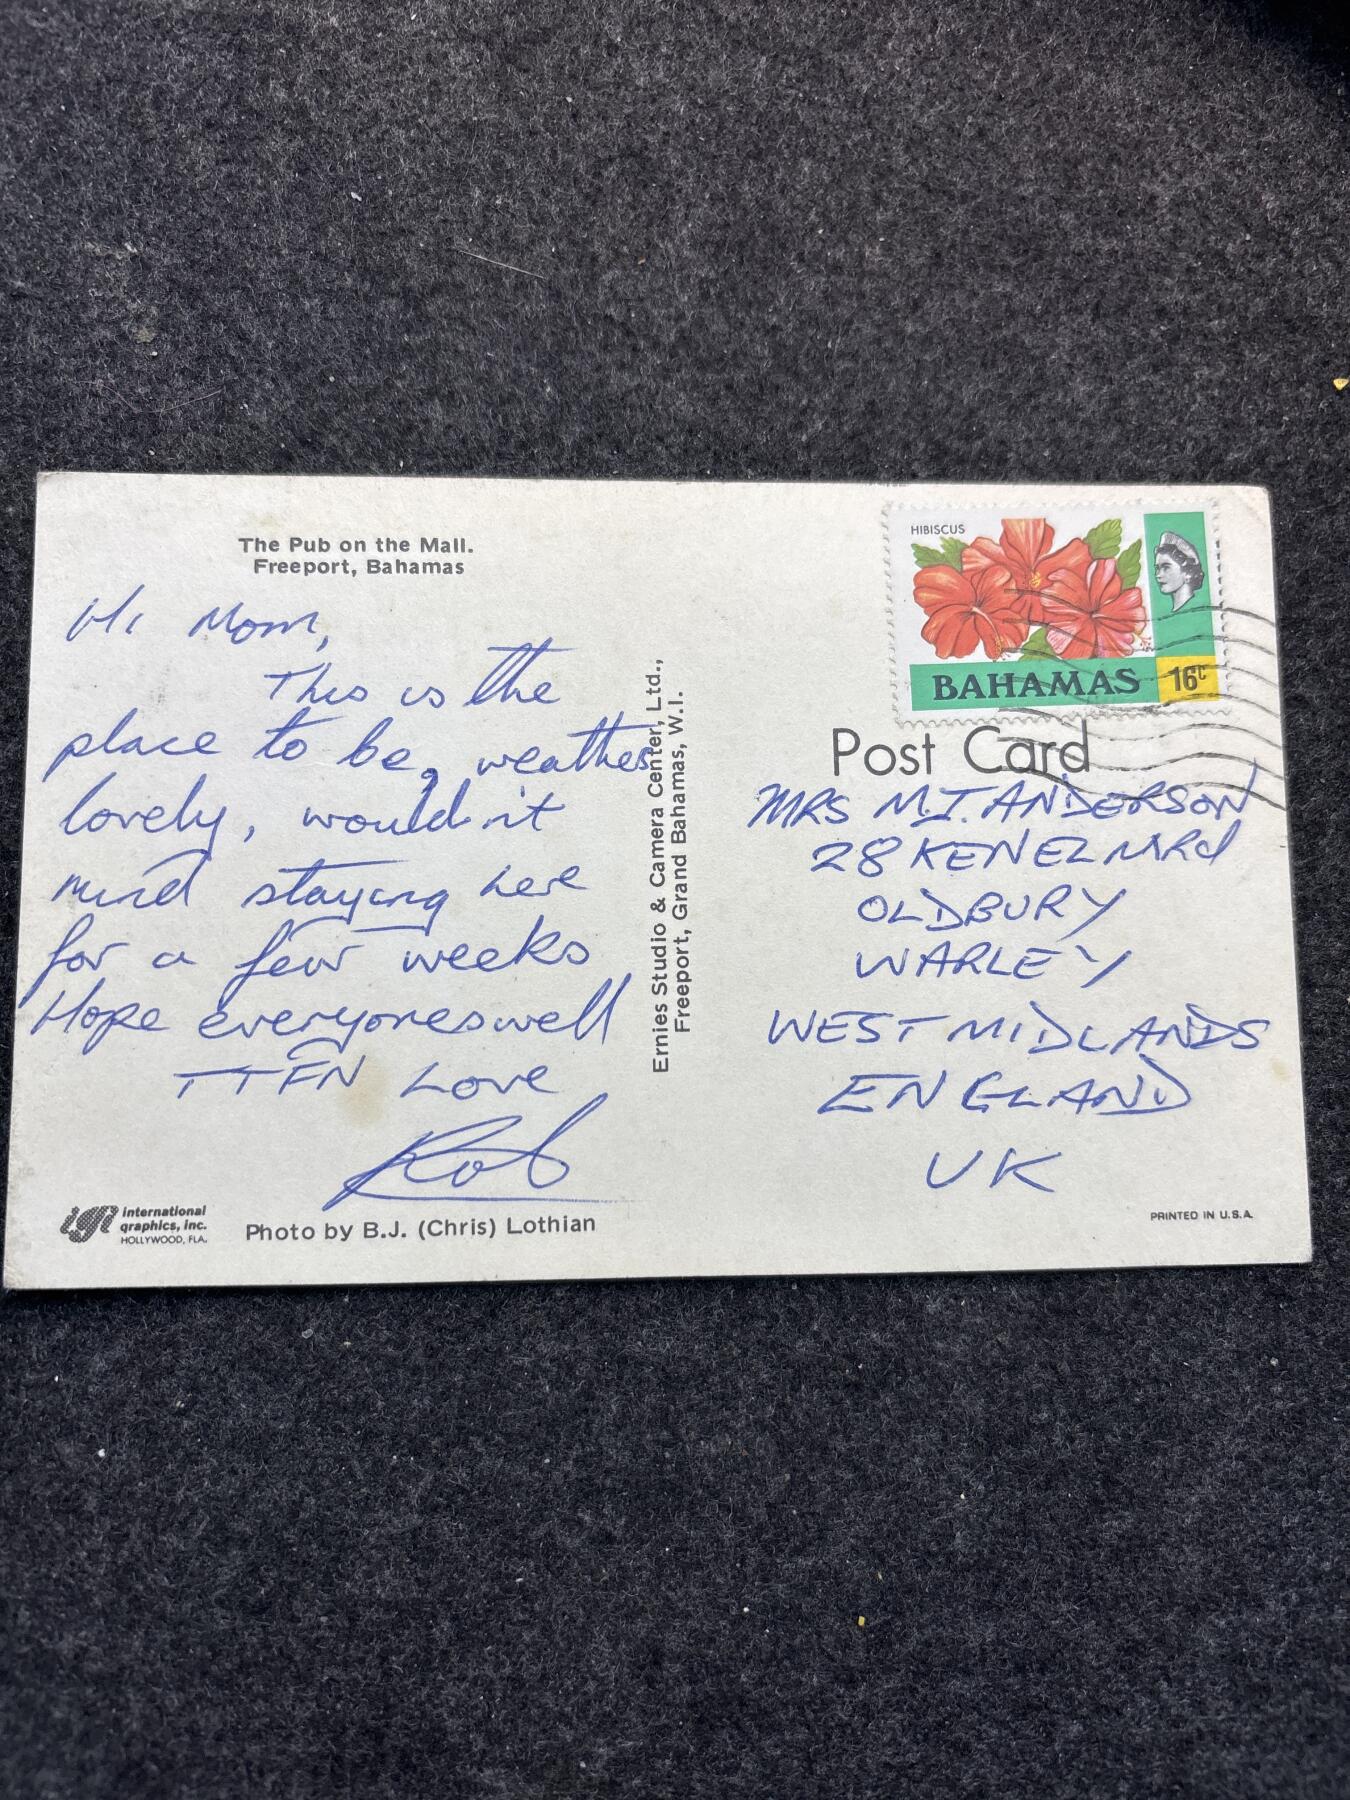 The Pub on the Mall.
Freeport, Bahamas
Hi Mom,
This is the
place to be, weather
lovely, would'nt
mind staying here
for a few weeks
Hope everyones well
TTFN Love
Rob
igi international
graphics, inc.
HOLLYWOOD, FLA.
Photo by B.J. (Chris) Lothian
Ernies Studio & Camera Center, Ltd.,
Freeport, Grand Bahamas, W.I.
HIBISCUS
BAHAMAS 16c
Post Card
MRS M.I. ANDERSON
28 KENELM Rd
OLDBURY
WARLEY
WEST MIDLANDS
ENGLAND
UK
PRINTED IN U.S.A.